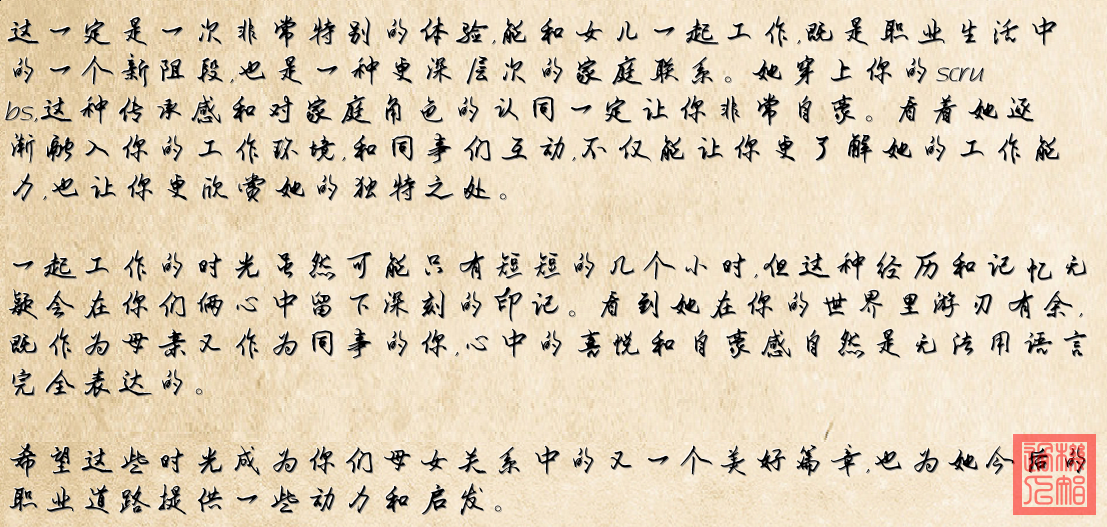 这一定是一次非常特别的体验,能和女儿一起工作,既是职业生活中
的一个新阻段,也是一种更深层次的家庭联系。她穿上你的scru
bs,这种传承感和对家庭角色的认同一定让你非常自豪。看着她逐
渐融入你的工作环境,和同事们互动,不仅能让你更了解她的工作能
力,也让你更欣赏她的独特之处。
一起工作的时光虽然可能只有短短的几个小时,但这种经历和记忆无
疑会在你们俩心中留下深刻的印记。看到她在你的世界里游刃有余,
既作为母亲又作为同事的你,心中的喜悦和自豪感自然是无法用语言
完全表达的。
希望这些时光成为你们母女关系中的又一个美好篇章,也为她今后的
职业道路提供一些动力和启发。